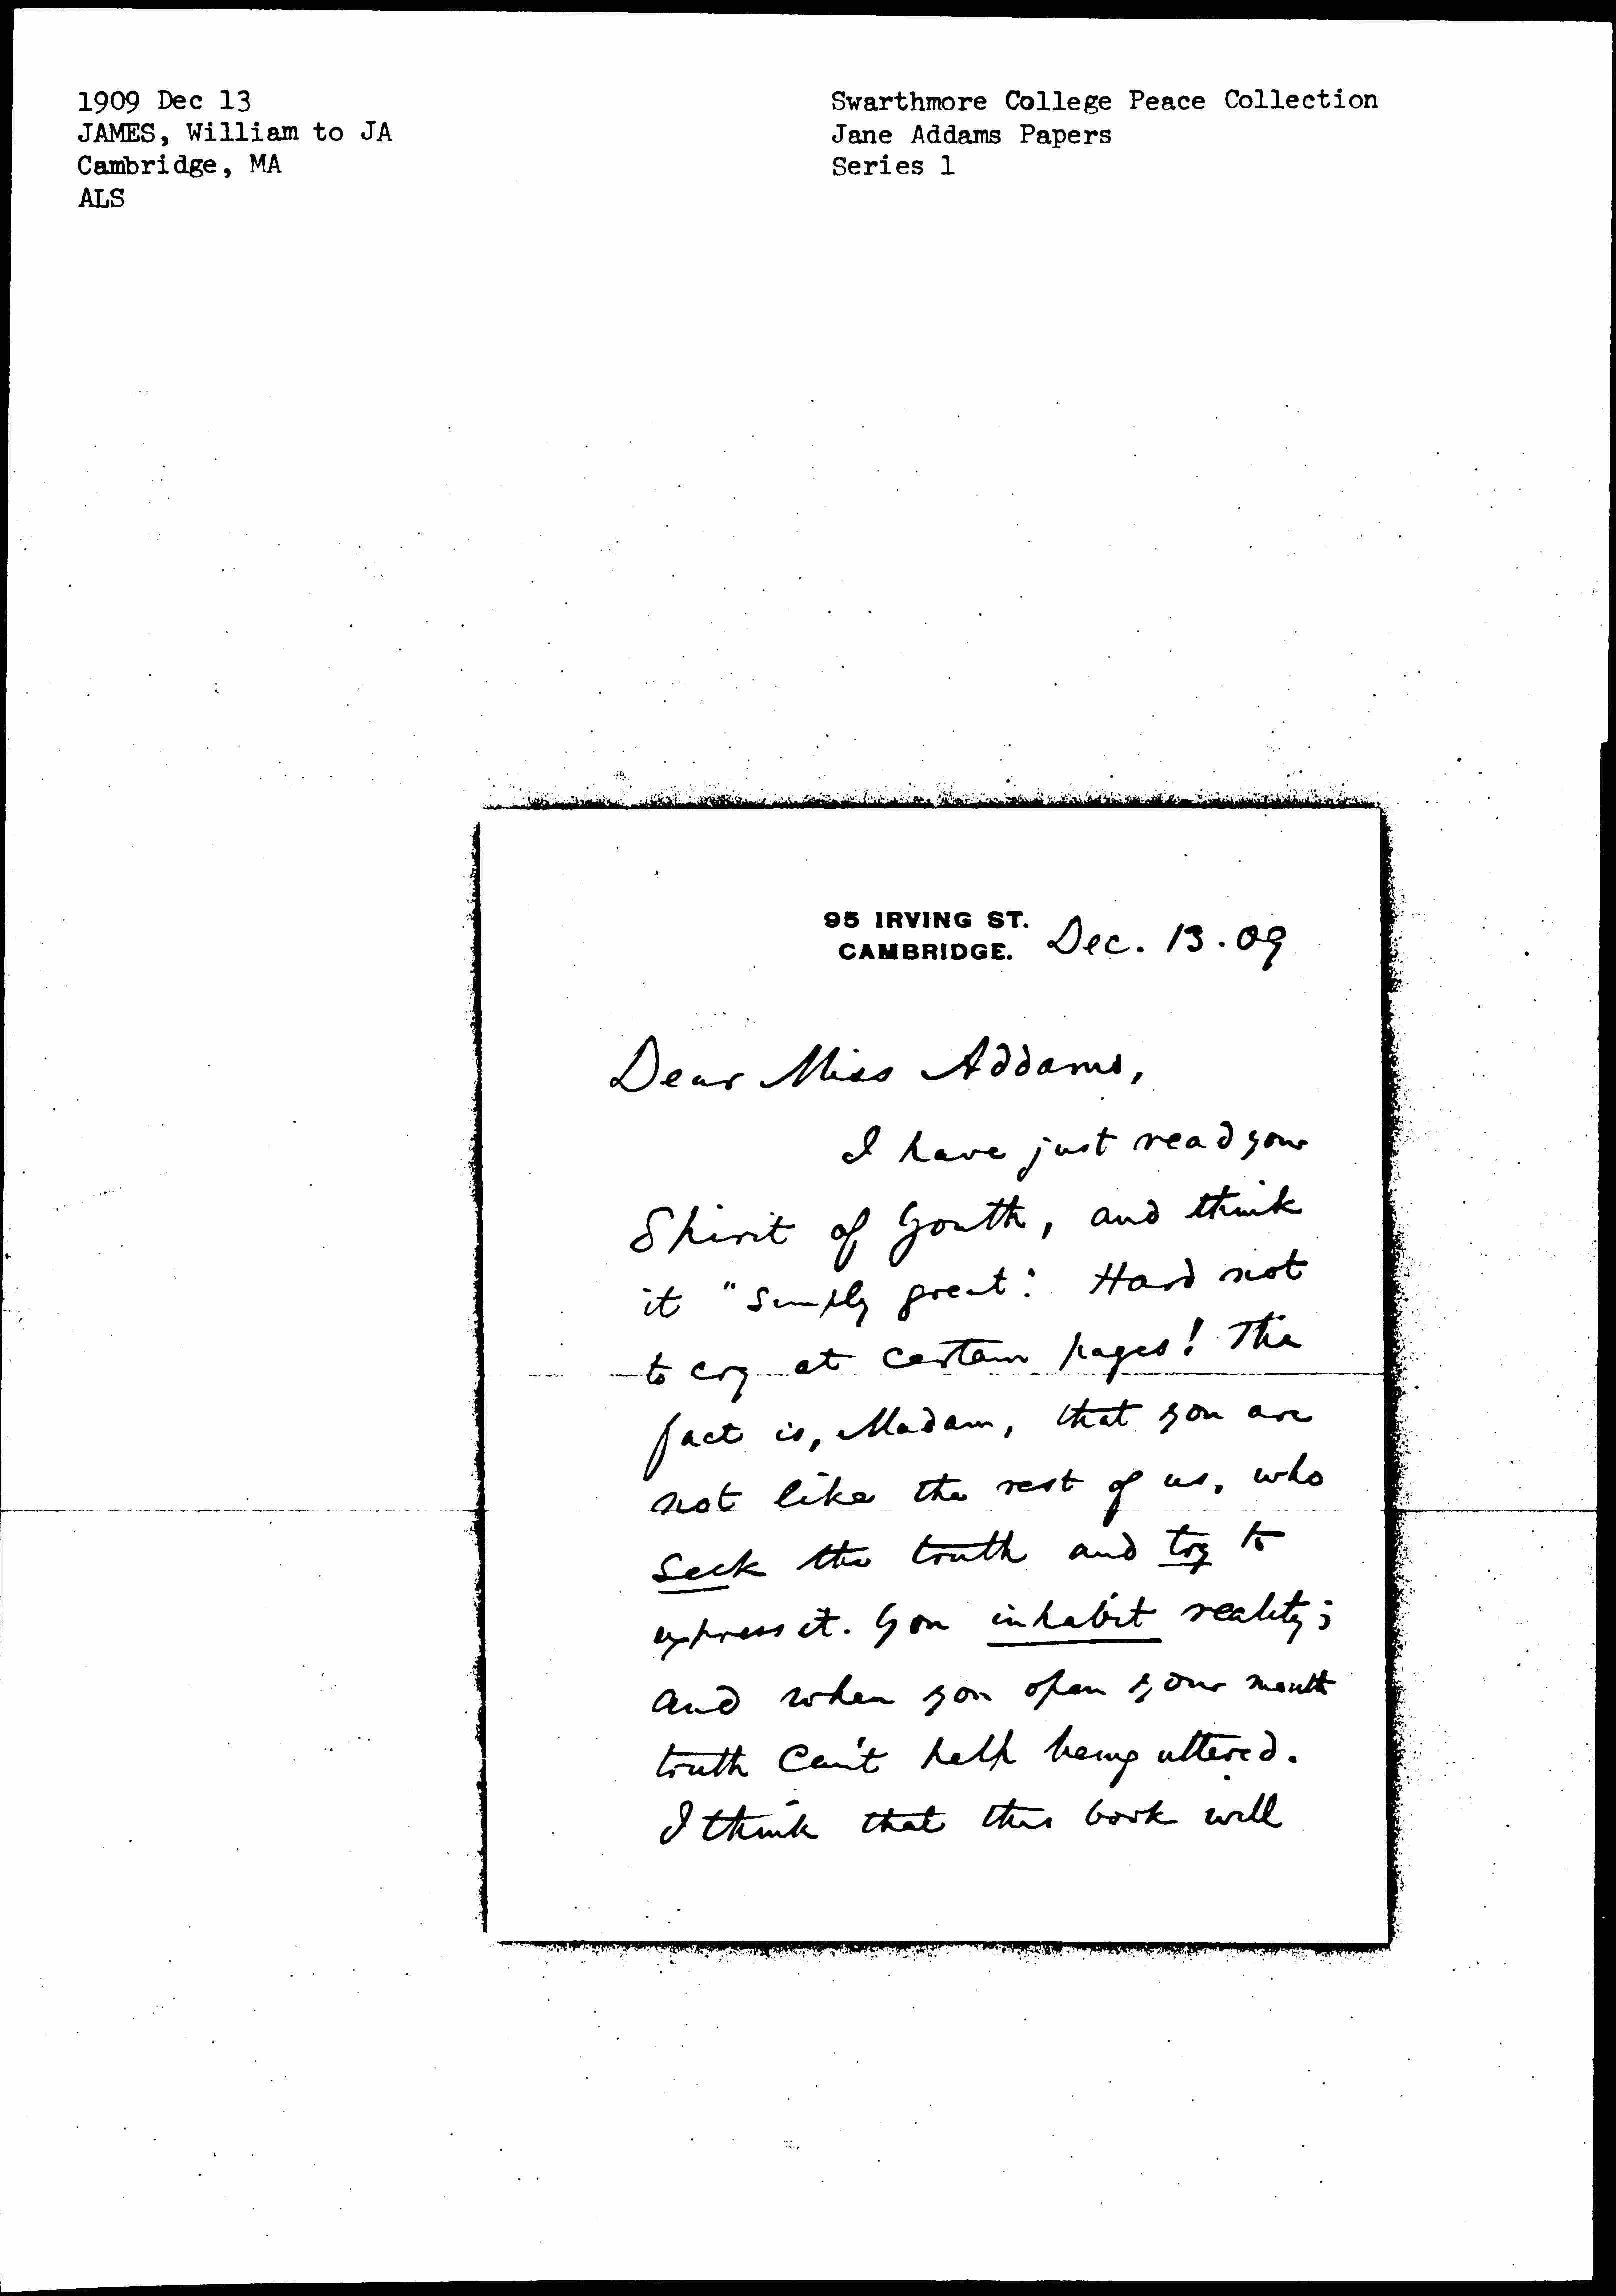 1909 Dec 13
JAMES, William to JA
Cambridge, MA
ALS
Swarthmore College Peace Collection
Jane Addams Papers
Series 1
95 IRVING ST.
CAMBRIDGE.
Dec. 13. 09
Dear Miss Addams,
I have just read your
Spirit of Youth, and think
it "simply great". Hard not
to cry at certain pages! The
fact is, Madam, that you are
not like the rest of us, who
seek the truth and try to
express it. You inhabit reality;
and when you open your mouth
truth can't help being uttered.
I think that this book will